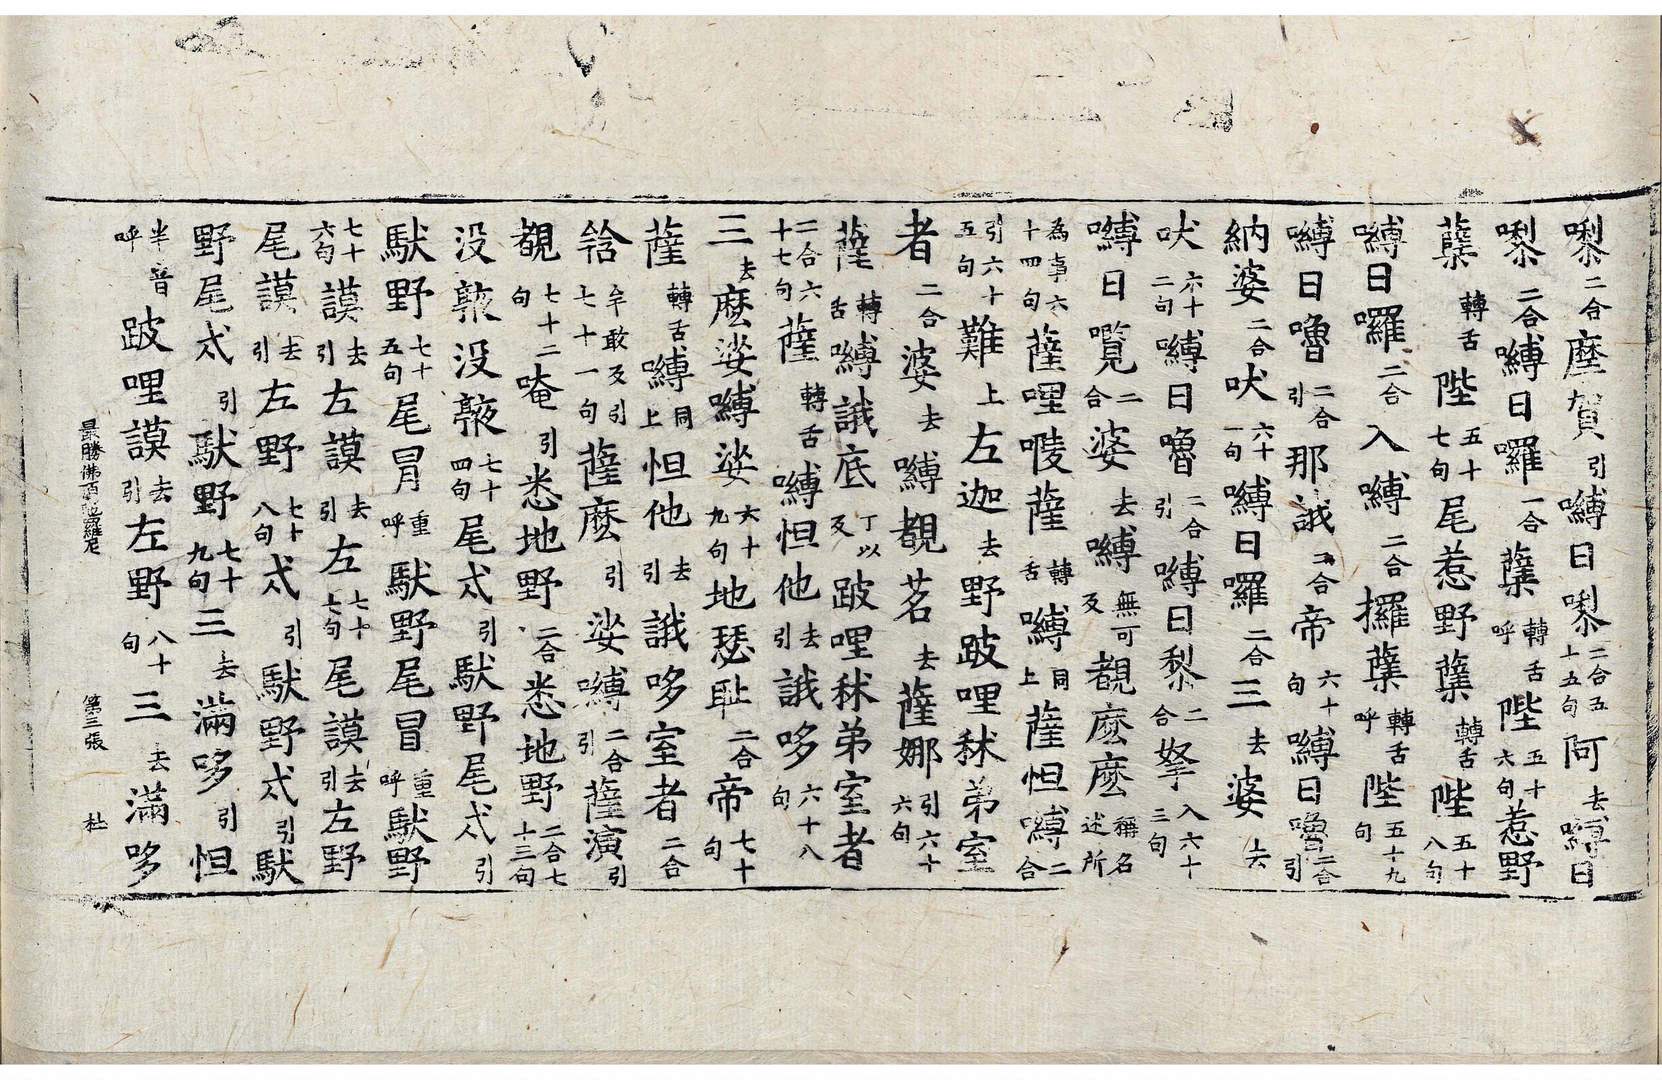 㘑二合摩賀引嚩日㘑二合五十五句阿去嚩日
㘑二合嚩日囉二合蘖轉舌呼陛五十六句惹野
蘖轉舌陛五十七句尾惹野蘖轉舌陛五十八句
嚩日囉二合入嚩二合攞蘖轉舌呼陛五十九句
嚩日嚕二合引那誐二合帝六十句嚩日嚕二合引
納婆二合吠六十一句嚩日囉二合三去婆去
吠六十二句嚩日嚕二合引嚩日黎二合拏入六十三句
嚩日覽二合婆去嚩無可反覩麽麽稱名述所
為事六十四句薩哩㗚薩轉舌嚩同上薩怛嚩二合
引六十五句難上左迦去野跛哩秫弟室
者二合婆去嚩覩茗去薩娜引六十六句
薩轉舌嚩誐底丁以反跛哩秫弟室者
二合六十七句薩轉舌嚩怛他去引誐哆六十八句
三去麽娑嚩娑六十九句地瑟耻二合帝七十句
薩轉舌嚩同上怛他去引誐哆室者二合
唅牟敢反引七十一句薩麽引娑嚩二合引薩演引
覩七十二句唵引悉地野二合悉地野二合七十三句
没䭾没䭾七十四句尾忒引䭾野尾忒引
䭾野七十五句尾冐重呼䭾野尾冒重呼䭾野
七十六句謨去引左謨去引左七十七句尾謨去引左野
尾謨去引左野七十八句忒引䭾野忒引䭾
野尾忒引䭾野七十九句三去滿哆引怛
半音呼跛哩謨去引左野八十句三去滿哆
最勝佛頂陁羅尼 第三張 杜